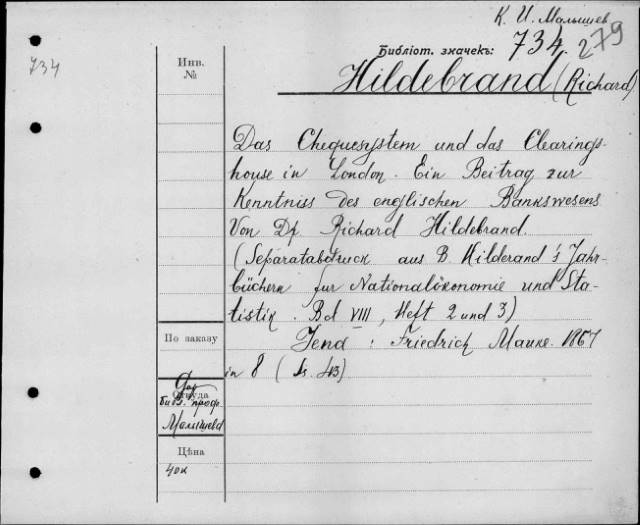 К. И. Малышев
Библіот. значекъ: 734. 279
734
Инв.
№
Hildebrand (Richard)
Das Chequesystem und das Clearings-
house in London. Ein Beitrag zur
Kenntniss des englischen Bankswesens
Von Dr. Richard Hildebrand.
(Separatabdruck aus B. Hilderand's Jahr-
büchern fur Nationalökonomie und Sta-
tistik. Bd VIII, Heft 2 und 3)
Jena: Friedrich Mauke. 1867
in 8 ( s. 43)
По заказу
Откуда
Дар
библ. проф.
Малышева
Цѣна
40к